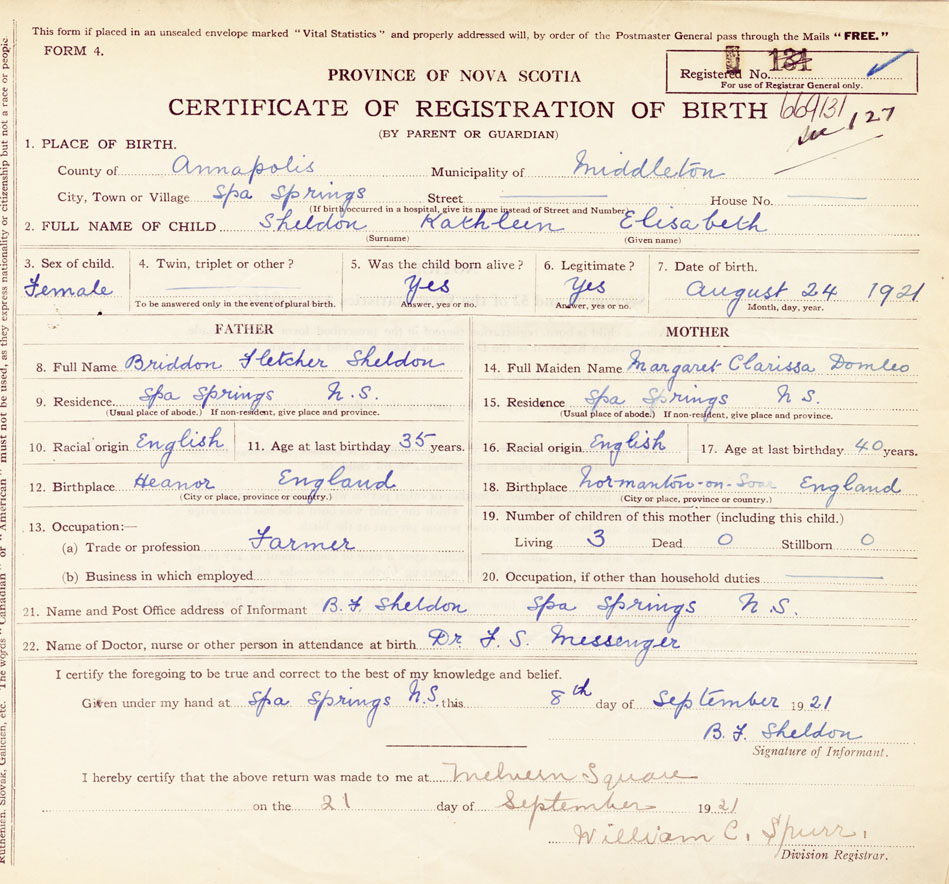 This form if placed in an unsealed envelope marked "Vital Statistics" and properly addressed will, by order of the Postmaster General pass through the Mails "FREE."
FORM 4.
Registered No. 131
For use of Registrar General only.
PROVINCE OF NOVA SCOTIA
CERTIFICATE OF REGISTRATION OF BIRTH 669131
127
(BY PARENT OR GUARDIAN)
1. PLACE OF BIRTH.
County of Annapolis Municipality of Middleton
City, Town or Village Spa Springs Street House No.
(If birth occurred in a hospital, give its name instead of Street and Number)
2. FULL NAME OF CHILD Sheldon Kathleen Elisabeth
(Surname) (Given name)
3. Sex of child. 4. Twin, triplet or other? 5. Was the child born alive? 6. Legitimate? 7. Date of birth.
Female Yes Yes August 24 1921
To be answered only in the event of plural birth. Answer, yes or no. Answer, yes or no. Month, day, year.
FATHER MOTHER
8. Full Name Briddon Fletcher Sheldon 14. Full Maiden Name Margaret Clarissa Domleo
9. Residence. Spa Springs N.S. 15. Residence Spa Springs N S.
(Usual place of abode.) If non-resident, give place and province. (Usual place of abode.) If non-resident, give place and province.
10. Racial origin English 11. Age at last birthday 35 years. 16. Racial origin English 17. Age at last birthday 40 years.
12. Birthplace Heanor England 18. Birthplace Normanton-on-Soar England
(City or place, province or country.) (City or place, province or country.)
13. Occupation:— 19. Number of children of this mother (including this child.)
(a) Trade or profession Farmer Living 3 Dead 0 Stillborn 0
(b) Business in which employed 20. Occupation, if other than household duties
21. Name and Post Office address of Informant B.F. Sheldon Spa Springs N.S.
22. Name of Doctor, nurse or other person in attendance at birth Dr. F. S. Messenger
I certify the foregoing to be true and correct to the best of my knowledge and belief.
Given under my hand at Spa Springs N.S. this 8th day of September 1921
B. F. Sheldon
Signature of Informant.
I hereby certify that the above return was made to me at Melvern Square
on the 21 day of September 1921
William C. Spurr.
Division Registrar.
Ruthenian, Slovak, Galicien, etc. The words "Canadian" or "American" must not be used, as they express nationality or citizenship but not a race or people